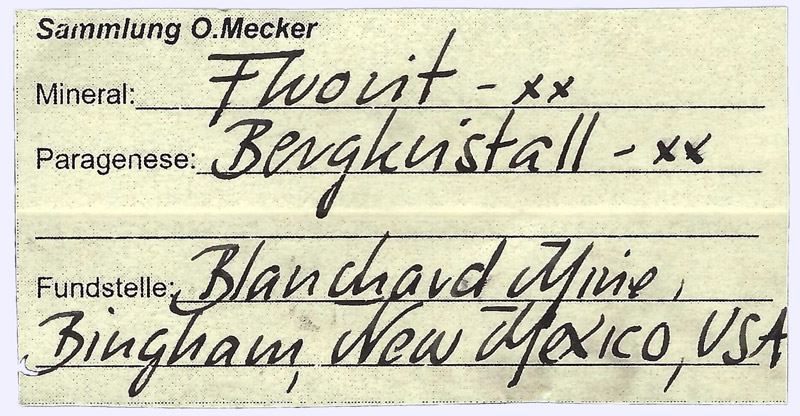 Sammlung O.Mecker
Mineral: Fluorit - xx
Paragenese: Bergkristall - xx
Fundstelle: Blanchard Mine,
Bingham, New Mexico, USA